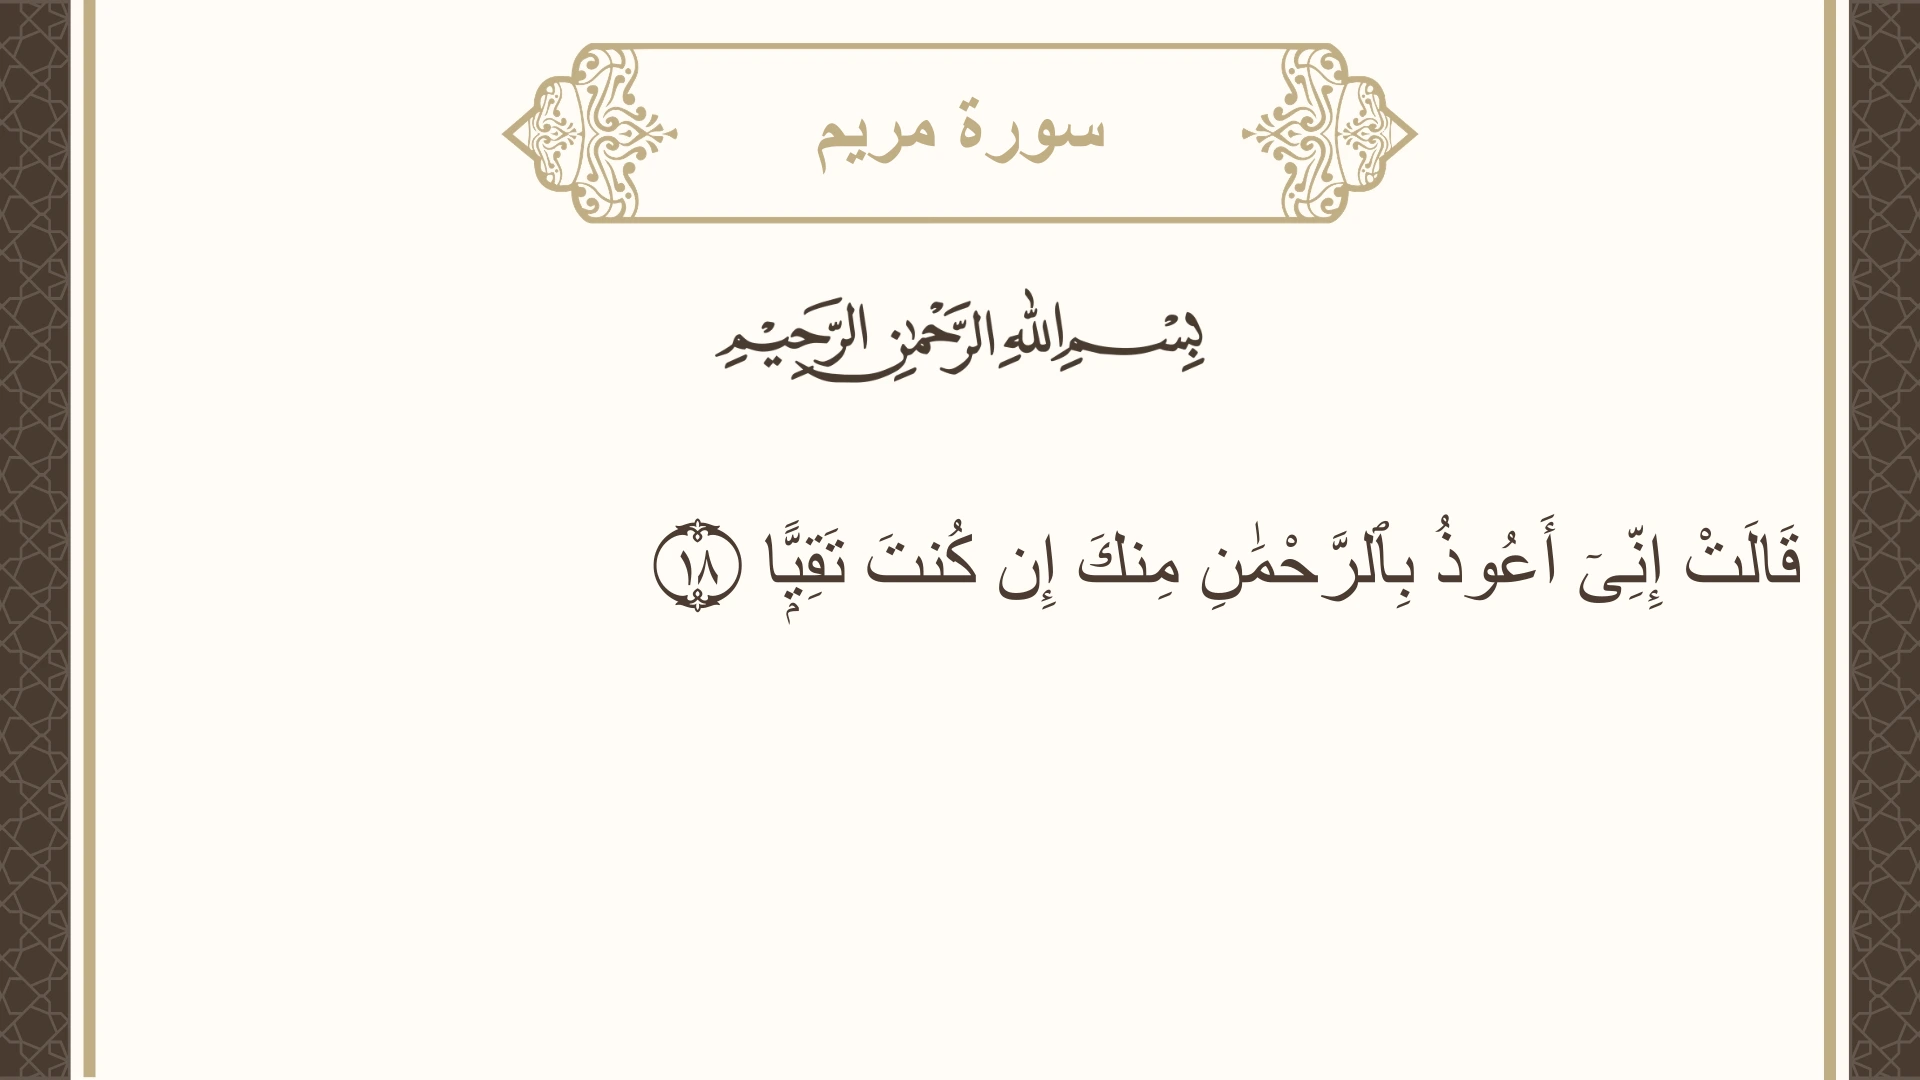 سورة مريم
بِسْمِ اللهِ الرَّحْمٰنِ الرَّحِيْمِ
قَالَتْ إِنِّىٓ أَعُوذُ بِٱلرَّحْمَٰنِ مِنكَ إِن كُنتَ تَقِيًّۭا ١٨